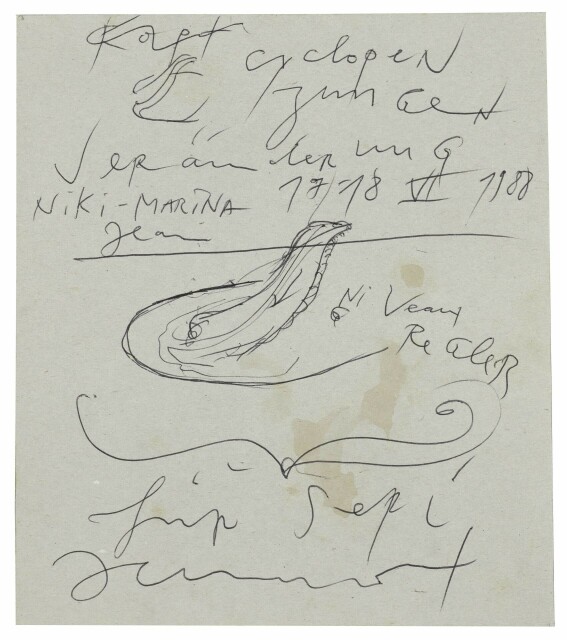 Kopf cyclopen
zungen
Veränderung
NiKi-MARiNA 17-18 VI 1988
Jean
Niveau
für Sepi